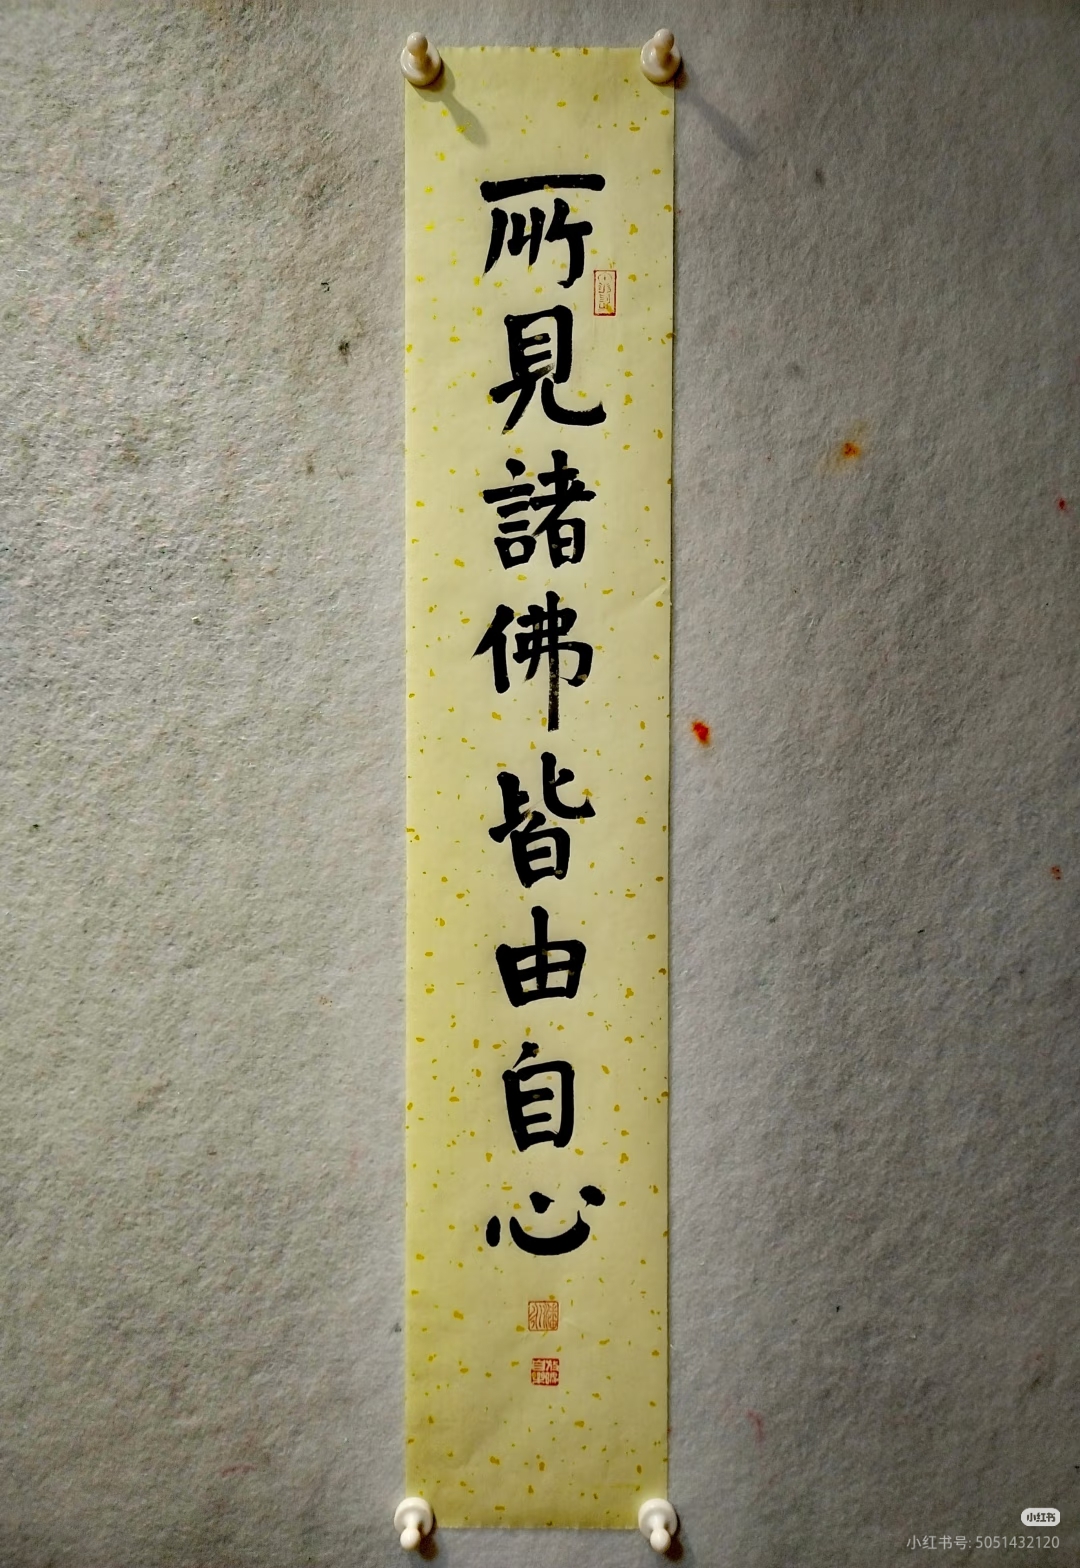 所見諸佛皆由自心
小红书
小红书号: 5051432120